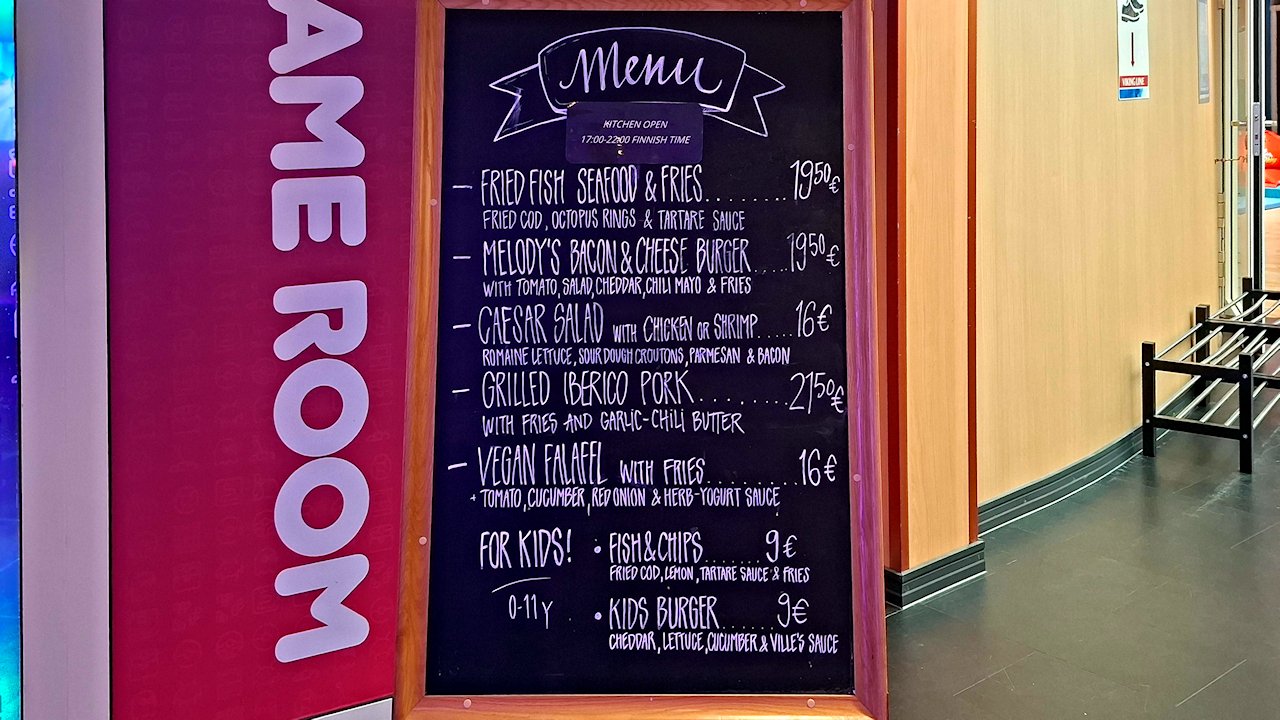 AME ROOM
Menu
KITCHEN OPEN
17:00-22:00 FINNISH TIME
– FRIED FISH SEAFOOD & FRIES........19.50€
FRIED COD, OCTOPUS RINGS & TARTARE SAUCE
– MELODY'S BACON & CHEESE BURGER.....19.50€
WITH TOMATO, SALAD, CHEDDAR, CHILI MAYO & FRIES
– CAESAR SALAD WITH CHICKEN OR SHRIMP.....16€
ROMAINE LETTUCE, SOURDOUGH CROUTONS, PARMESAN & BACON
– GRILLED IBERICO PORK.........21.50€
WITH FRIES AND GARLIC-CHILI BUTTER
– VEGAN FALAFEL WITH FRIES.........16€
+ TOMATO, CUCUMBER, RED ONION & HERB-YOGURT SAUCE
FOR KIDS!
0-11 Y
• FISH & CHIPS.......9€
FRIED COD, LEMON, TARTARE SAUCE & FRIES
• KIDS BURGER......9€
CHEDDAR, LETTUCE, CUCUMBER & VILLE'S SAUCE
VIKING LINE